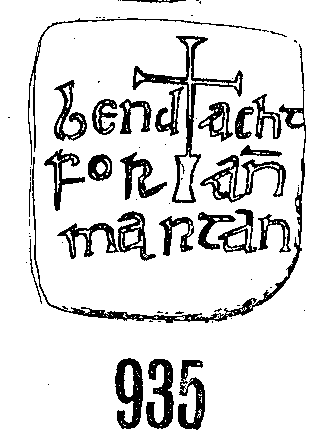 bendacht
for an̄
martan
935